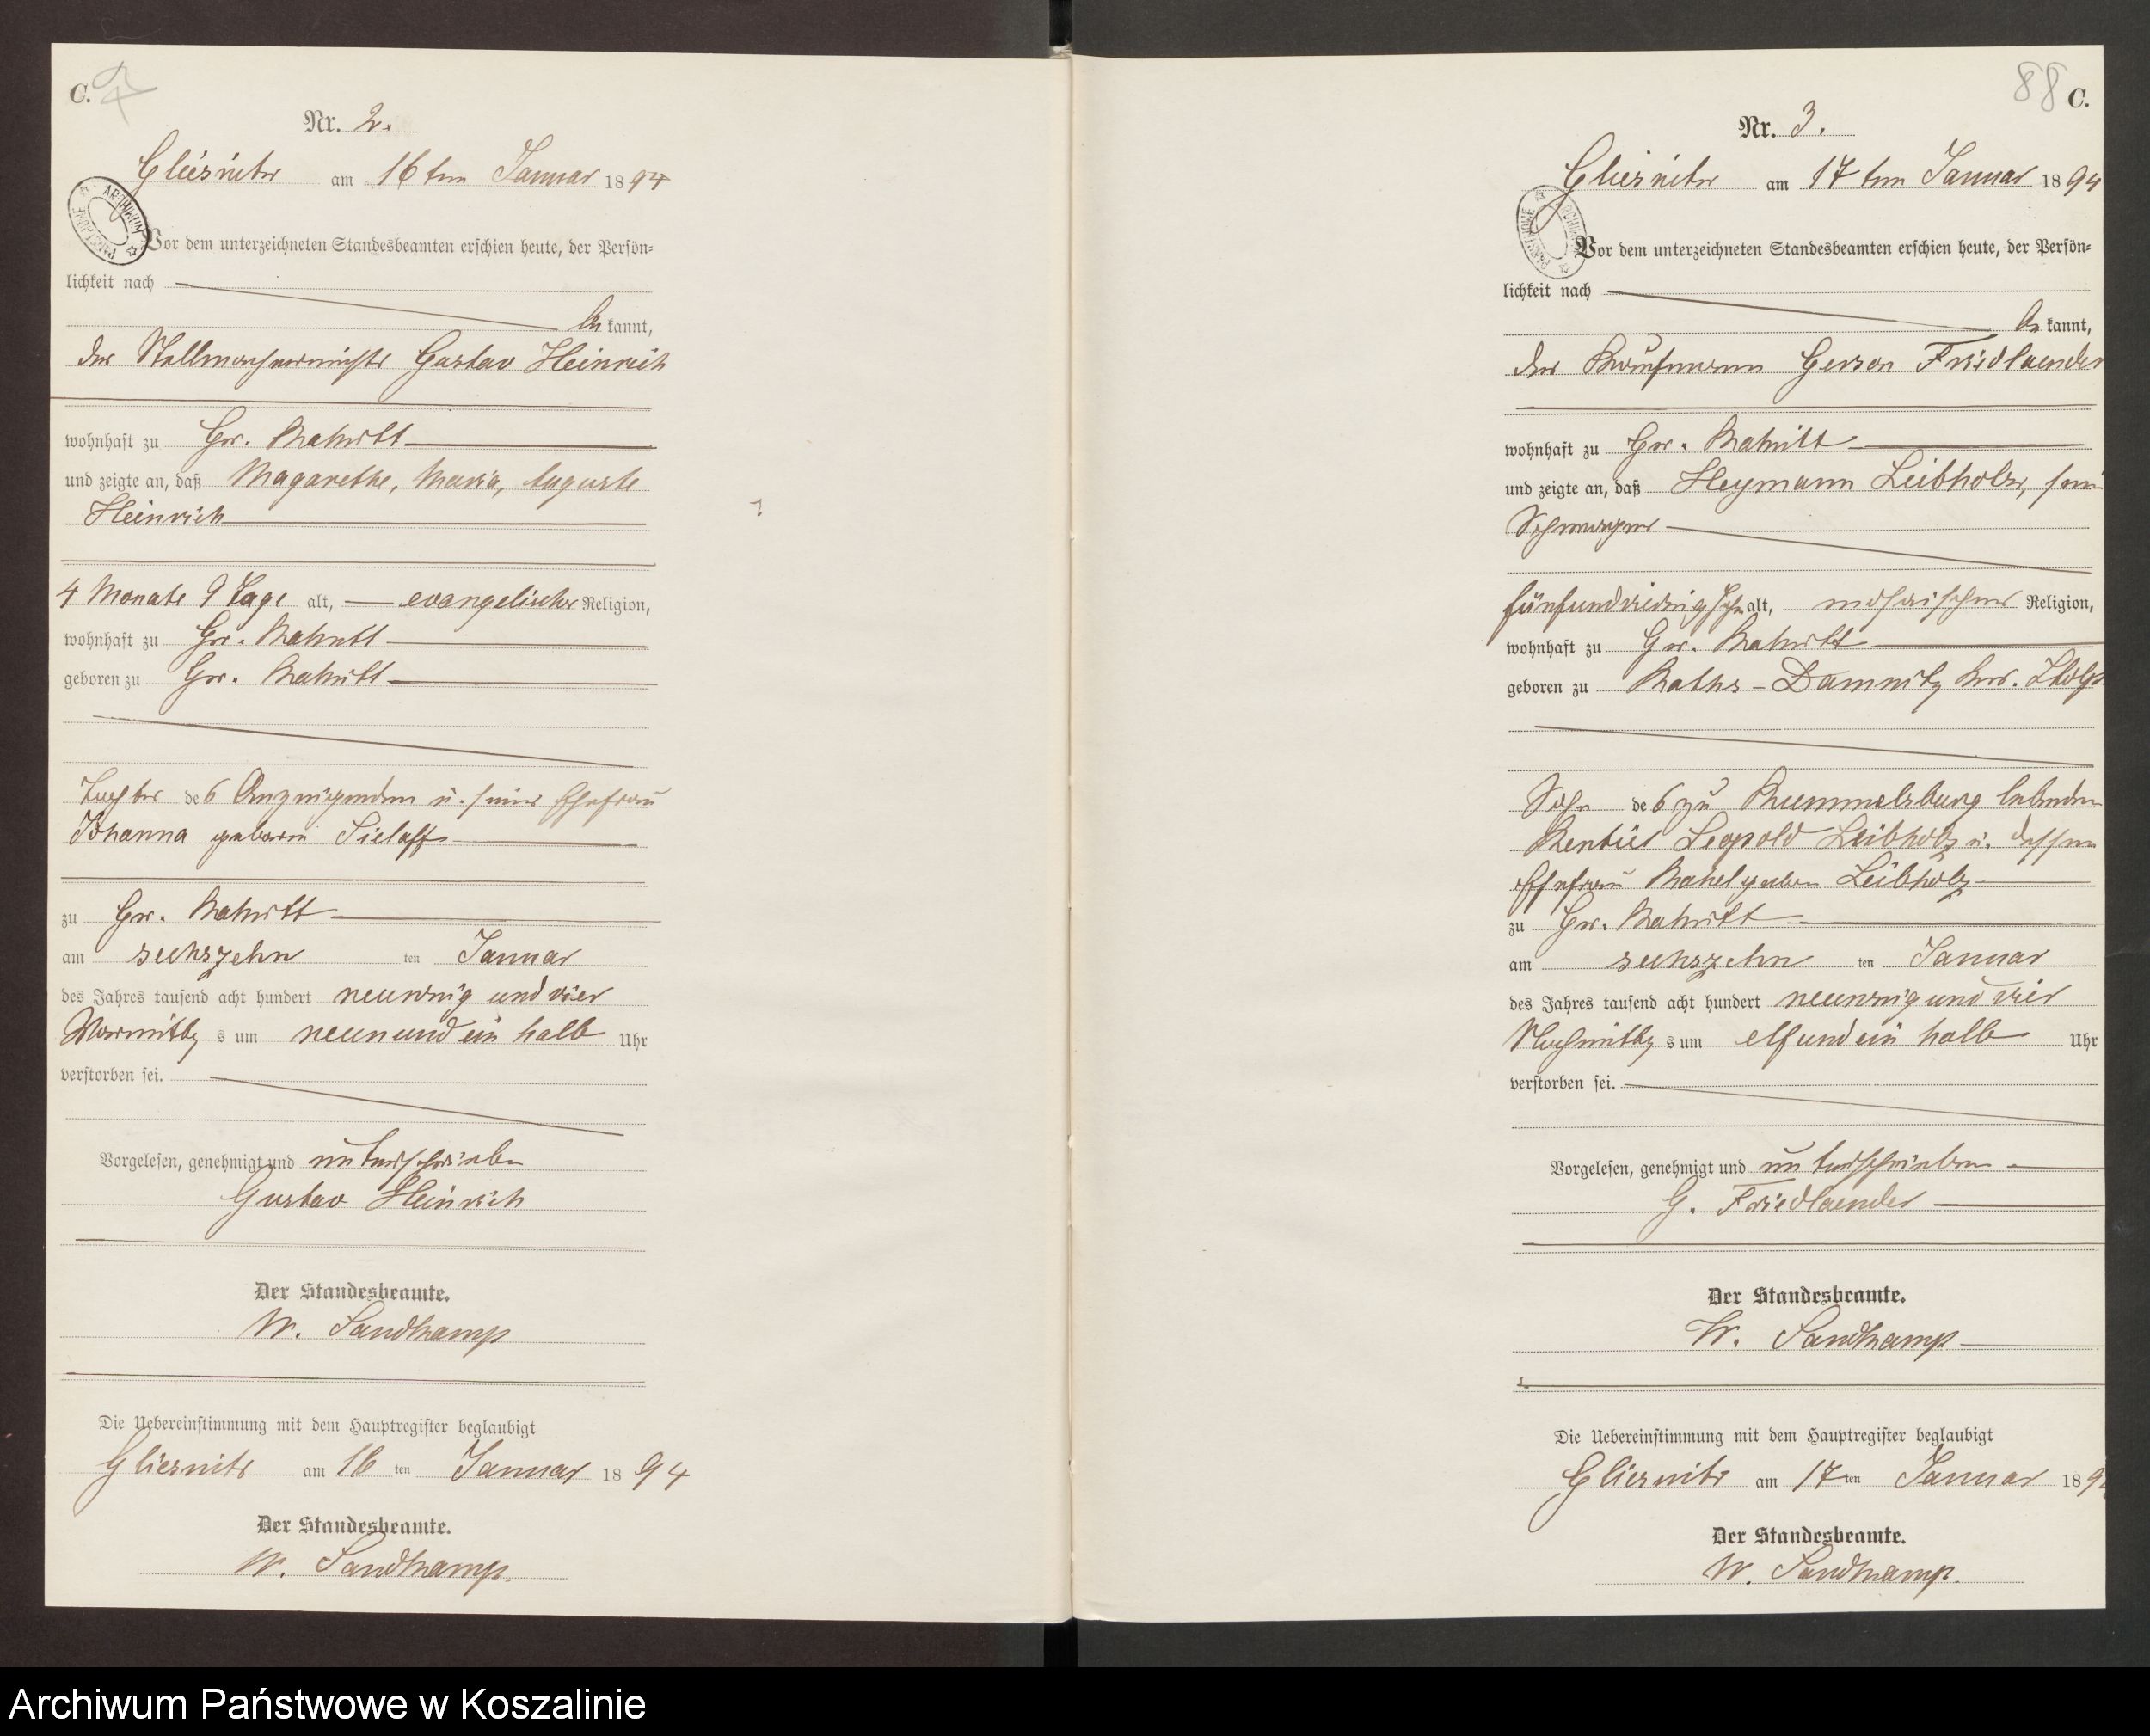 C.
Nr. 2.
Gliesnitz am 16ten Januar 1894
Vor dem unterzeichneten Standesbeamten erschien heute, der Persön-
lichkeit nach
be kannt,
der Stellmachermeister Gustav Heinrich
wohnhaft zu Gr.
und zeigte an, daß Magarethe, Maria, Auguste
Heinrich
4 Monate 9 Tage alt, evangelischer Religion,
wohnhaft zu Gr.
geboren zu Gr.
Tochter des Anzeigenden u. seiner Ehefrau
Johanna geboren Sielaff
zu Gr.
am sechszehn ten Januar
des Jahres tausend acht hundert neunzig und vier
Vormittags um neun und ein halb Uhr
verstorben sei.
Vorgelesen, genehmigt und unterschrieben
Gustav Heinrich
Der Standesbeamte.
W. Sandkamp
Die Uebereinstimmung mit dem Hauptregister beglaubigt
Gliesnitz am 16 ten Januar 1894
Der Standesbeamte.
W. Sandkamp.
88 C.
Nr. 3.
Gliesnitz am 17ten Januar 1894
Vor dem unterzeichneten Standesbeamten erschien heute, der Persön-
lichkeit nach
be kannt,
der Kaufmann Gerson Friedlaender
wohnhaft zu Gr.
und zeigte an, daß Heymann Leibholz, sein
Schwager
fünfundvierzig Jahr alt, mosaischer Religion,
wohnhaft zu Gr.
geboren zu Raths-Damnitz Krs. Stolp
Sohn des zu Rummelsburg lebenden
Rentier Leopold Leibholz u. dessen
Ehefrau Rahel geboren Leibholz
zu Gr.
am sechszehn ten Januar
des Jahres tausend acht hundert neunzig und vier
Nachmittags um elf und ein halb Uhr
verstorben sei.
Vorgelesen, genehmigt und unterschrieben
G. Friedlaender
Der Standesbeamte.
W. Sandkamp
Die Uebereinstimmung mit dem Hauptregister beglaubigt
Gliesnitz am 17 ten Januar 189
Der Standesbeamte.
W. Sandkamp.
Archiwum Państwowe w Koszalinie